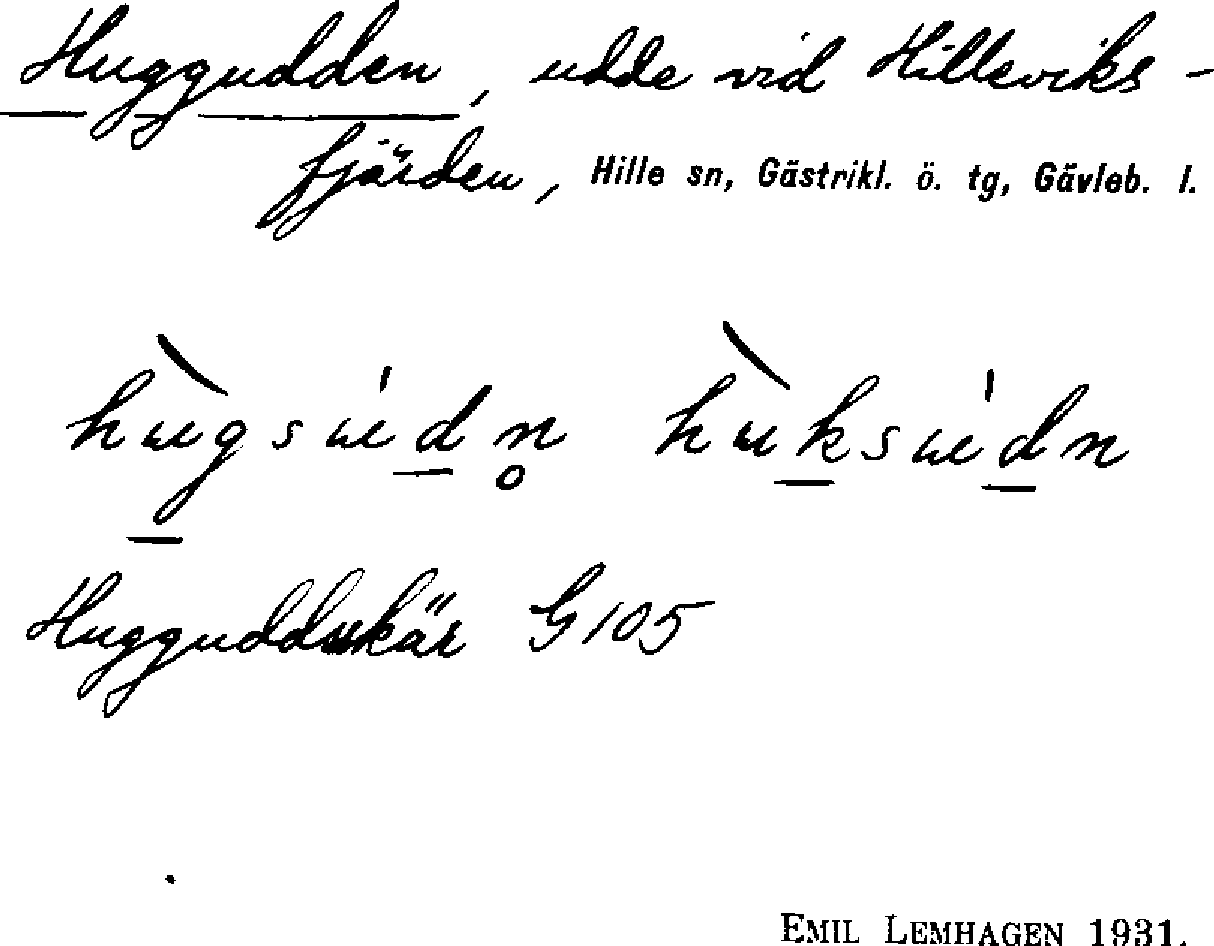 Huggudden, udde vid Hilleviks-
fjärden, Hille sn, Gästrikl. ö. tg, Gävleb. l.
hɯ̀gsɯ́dn̥ hɯ̀ksɯ́dn
Hugguddskär G105
EMIL LEMHAGEN 1931.